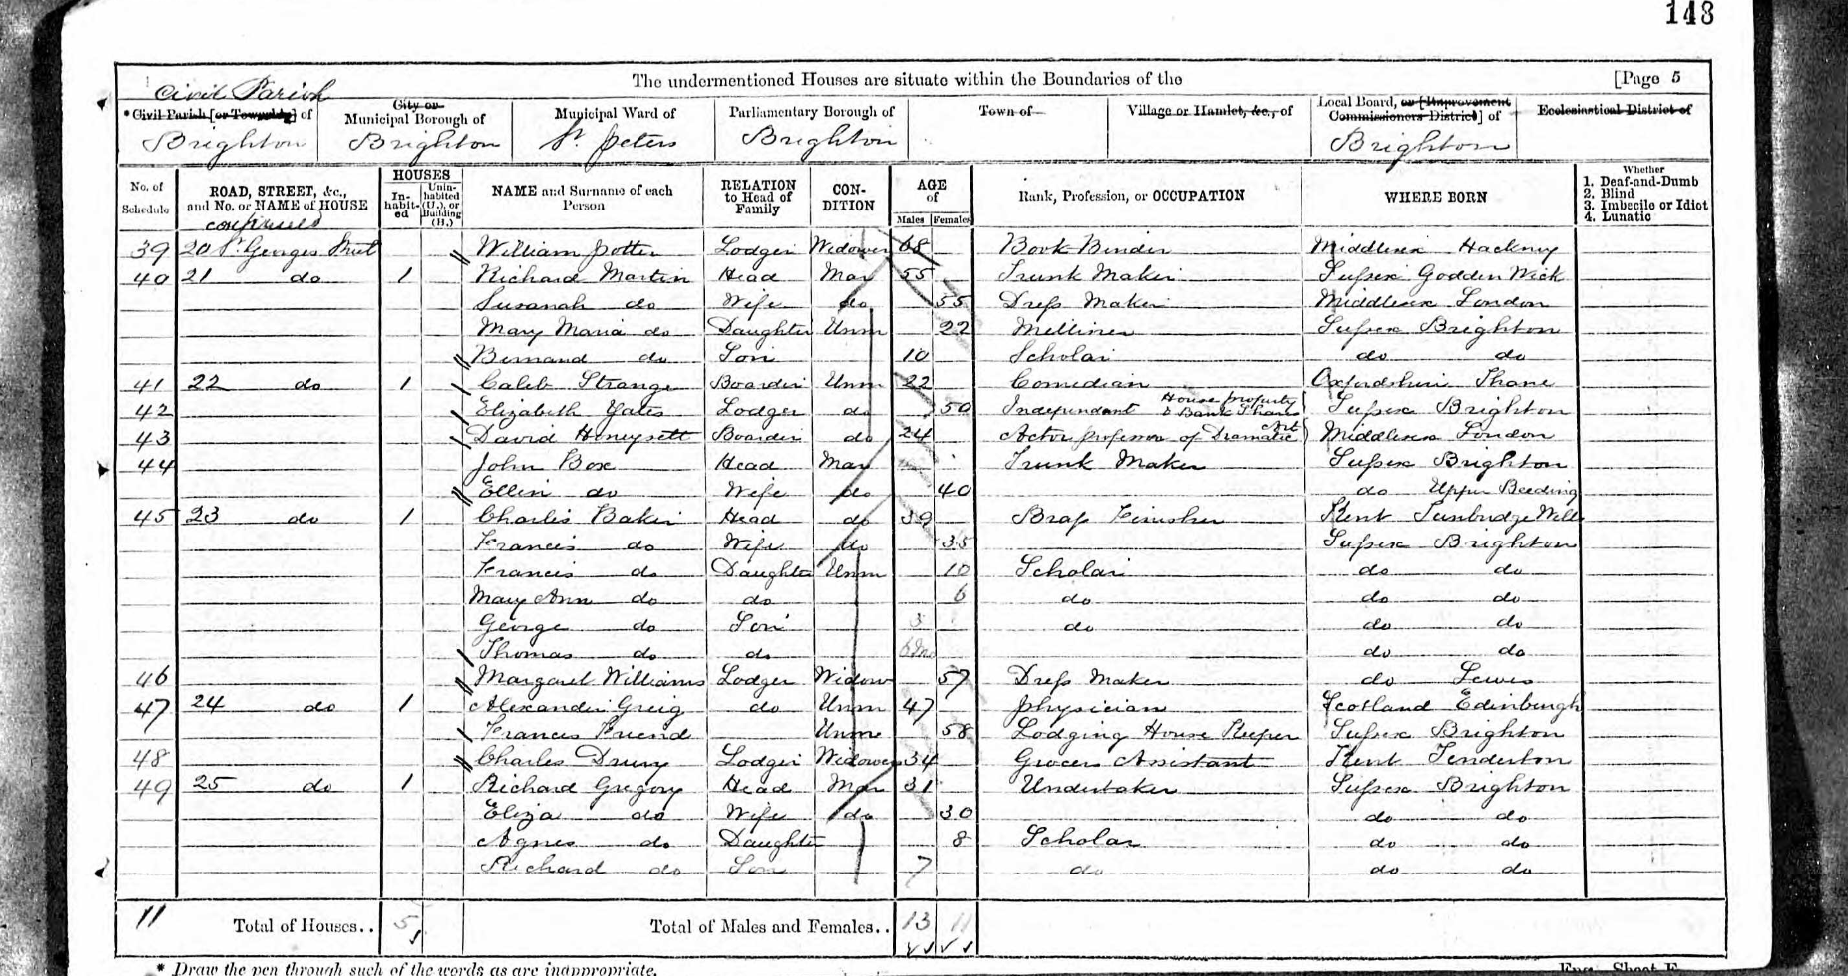 148
The undermentioned Houses are situate within the Boundaries of the [Page 5
Civil Parish
* Civil Parish [or Township] of
Brighton
City or
Municipal Borough of
Brighton
Municipal Ward of
St. Peters
Parliamentary Borough of
Brighton
Town of
Village or Hamlet, &c., of
Local Board, or [Improvement
Commissioners District] of
Brighton
Ecclesiastical District of
No. of Schedule
ROAD, STREET, &c., and No. or NAME of HOUSE
HOUSES
In-habit-ed
Unin-habited (U.), or Building (B.)
NAME and Surname of each Person
RELATION to Head of Family
CON-DITION
AGE of
Males Females
Rank, Profession, or OCCUPATION
WHERE BORN
Whether
1. Deaf-and-Dumb
2. Blind
3. Imbecile or Idiot
4. Lunatic
continued
39 20 St. Georges Street William Potter Lodger Widower 68 Book Binder Middlesex Hackney
40 21 do 1 Richard Martin Head Mar 55 Trunk Maker Sussex Godden Wick
Susanah do Wife do 55 Dress Maker Middlesex London
Mary Maria do Daughter Unm 22 Milliner Sussex Brighton
Bernard do Son 10 Scholar do do
41 22 do 1 Caleb Strange Boarder Unm 22 Comedian Oxfordshire Thame
42 Elizabeth Yates Lodger do 50 Independant House property & Bank Shares Sussex Brighton
43 David Honeysett Boarder do 24 Actor professor of Dramatic Art Middlesex London
44 John Box Head Mar Trunk Maker Sussex Brighton
Ellen do Wife do 40 do Upper Beeding
45 23 do 1 Charles Baker Head do 39 Brass Finisher Kent Tunbridge Wells
Francis do Wife do 35 Sussex Brighton
Francis do Daughter Unm 10 Scholar do do
Mary Ann do do 6 do do do
George do Son 3 do do do
Thomas do do 6m do do
46 Margaret Williams Lodger Widow 57 Dress Maker do Lewes
47 24 do 1 Alexander Greig do Unm 47 Physician Scotland Edinburgh
Frances Friend Unm 58 Lodging House Keeper Sussex Brighton
48 Charles Drury Lodger Widower 34 Grocers Assistant Kent Tenderton
49 25 do 1 Richard Gregory Head Mar 31 Undertaker Sussex Brighton
Eliza do Wife do 30 do do
Agnes do Daughter 8 Scholar do do
Richard do Son 7 do do do
11 Total of Houses.. 5 Total of Males and Females.. 13 11
* Draw the pen through such of the words as are inappropriate.
Eng. Sheet E.